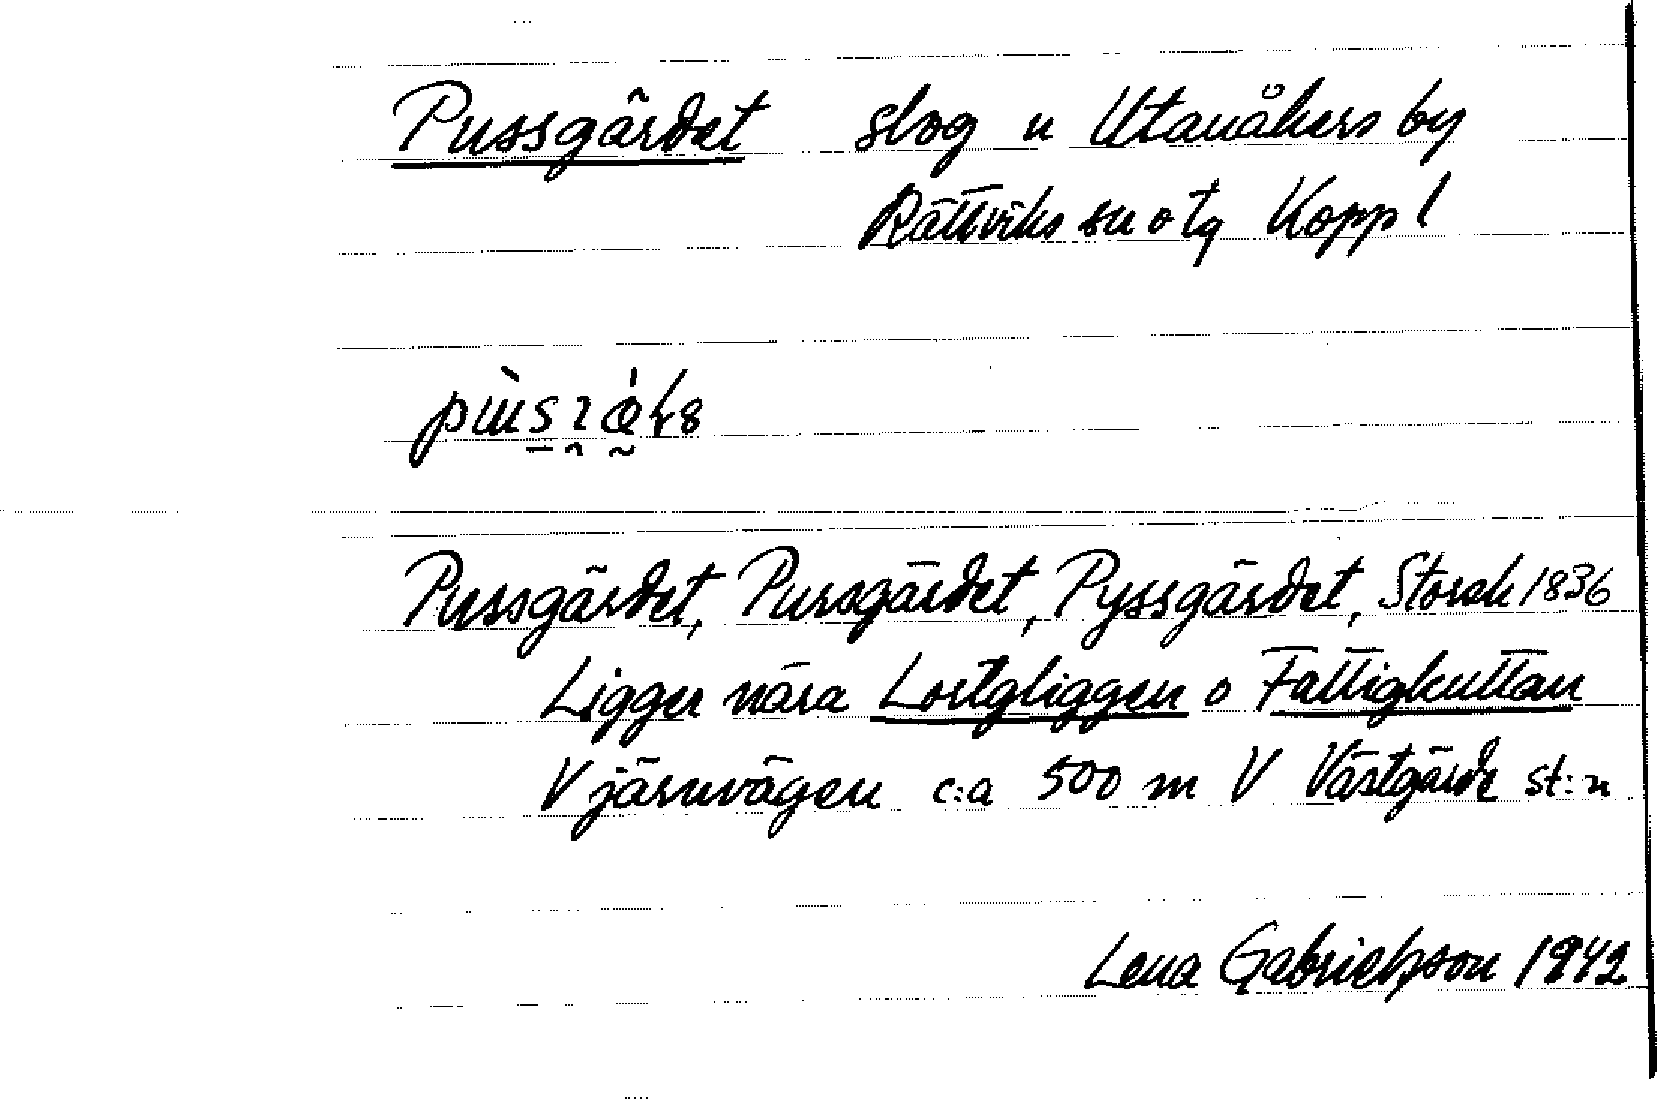 Pussgärdet slog u Utanåkers by
Rättviks sn o tg Kopp l
Pussgärdet, Pussgärdet, Pyssgärdet, Storsk 1836
Ligger nära Lortgliggen o Fattigkuttan
V järnvägen c:a 500 m V Västgärde st:n
Lena Gabrielsson 1942